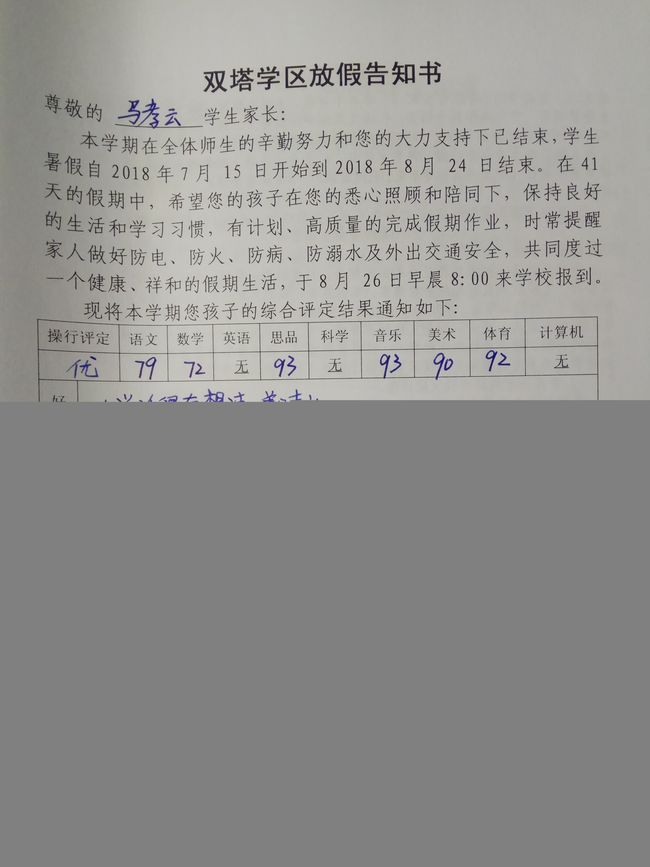 双塔学区放假告知书
尊敬的 马孝云 学生家长：
本学期在全体师生的辛勤努力和您的大力支持下已结束，学生
暑假自 2018 年 7 月 15 日开始到 2018 年 8 月 24 日结束。在 41
天的假期中，希望您的孩子在您的悉心照顾和陪同下，保持良好
的生活和学习习惯，有计划、高质量的完成假期作业，时常提醒
家人做好防电、防火、防病、防溺水及外出交通安全，共同度过
一个健康、祥和的假期生活，于 8 月 26 日早晨 8:00 来学校报到。
现将本学期您孩子的综合评定结果通知如下：
操行评定 语文 数学 英语 思品 科学 音乐 美术 体育 计算机
优 79 72 无 93 无 93 90 92 无